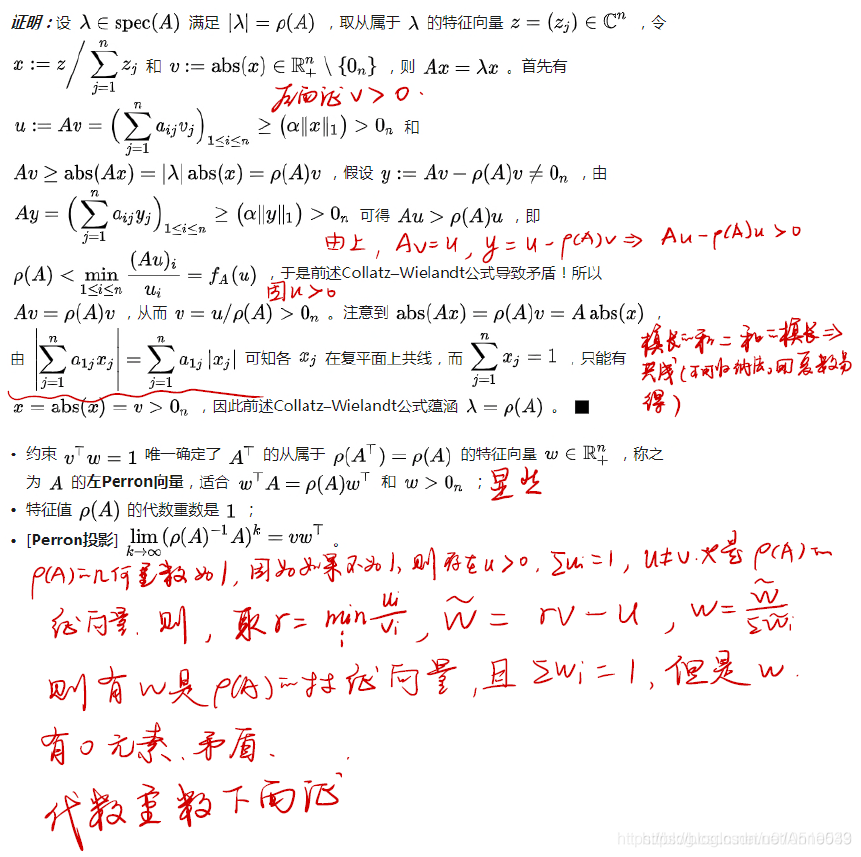 证明：设 λ ∈ spec(A) 满足 |λ| = ρ(A) ，取从属于 λ 的特征向量 z = (z_j) ∈ ℂ^n ，令
x := z / ∑_{j=1}^{n} z_j 和 v := abs(x) ∈ ℝ_+^n \ {0_n} ，则 Ax = λx 。首先有
后面证 v > 0 .
u := Av = (∑_{j=1}^{n} a_{ij}v_j)_{1≤i≤n} ≥ (α‖x‖_1) > 0_n 和
Av ≥ abs(Ax) = |λ| abs(x) = ρ(A)v ，假设 y := Av − ρ(A)v ≠ 0_n ，由
Ay = (∑_{j=1}^{n} a_{ij}y_j)_{1≤i≤n} ≥ (α‖y‖_1) > 0_n 可得 Au > ρ(A)u ，即
由上，Av=u，y = u − ρ(A)v ⇒ Au − ρ(A)u > 0
ρ(A) < min_{1≤i≤n} (Au)_i / u_i = f_A(u) ，于是前述Collatz–Wielandt公式导致矛盾！所以
因u>0
Av = ρ(A)v ，从而 v = u/ρ(A) > 0_n 。注意到 abs(Ax) = ρ(A)v = A abs(x) ，
由 |∑_{j=1}^{n} a_{1j}x_j| = ∑_{j=1}^{n} a_{1j} |x_j| 可知各 x_j 在复平面上共线，而 ∑_{j=1}^{n} x_j = 1 ，只能有
模长二和=和二模长⇒
共线（不可归纳法，回复数易
得）
x = abs(x) = v > 0_n ，因此前述Collatz–Wielandt公式蕴涵 λ = ρ(A) 。 ■
• 约束 v^⊤w = 1 唯一确定了 A^⊤ 的从属于 ρ(A^⊤) = ρ(A) 的特征向量 w ∈ ℝ_+^n ，称之
为 A 的左Perron向量，适合 w^⊤A = ρ(A)w^⊤ 和 w > 0_n ；显然
• 特征值 ρ(A) 的代数重数是 1 ；
• [Perron投影] lim_{k→∞} (ρ(A)^{−1}A)^k = vw^⊤ 。
ρ(A)二几何重数为1，因为如果不为1，则存在u>0，∑u_i=1，u≠v.也是 ρ(A)二
征向量. 则，取 r = min_i u_i/v_i，w̃ = rv − u，w = w̃/∑w̃_i
则有 w 是 ρ(A)二特征向量，且 ∑w_i = 1，但是 w
有0元素、矛盾.
代数重数下面证